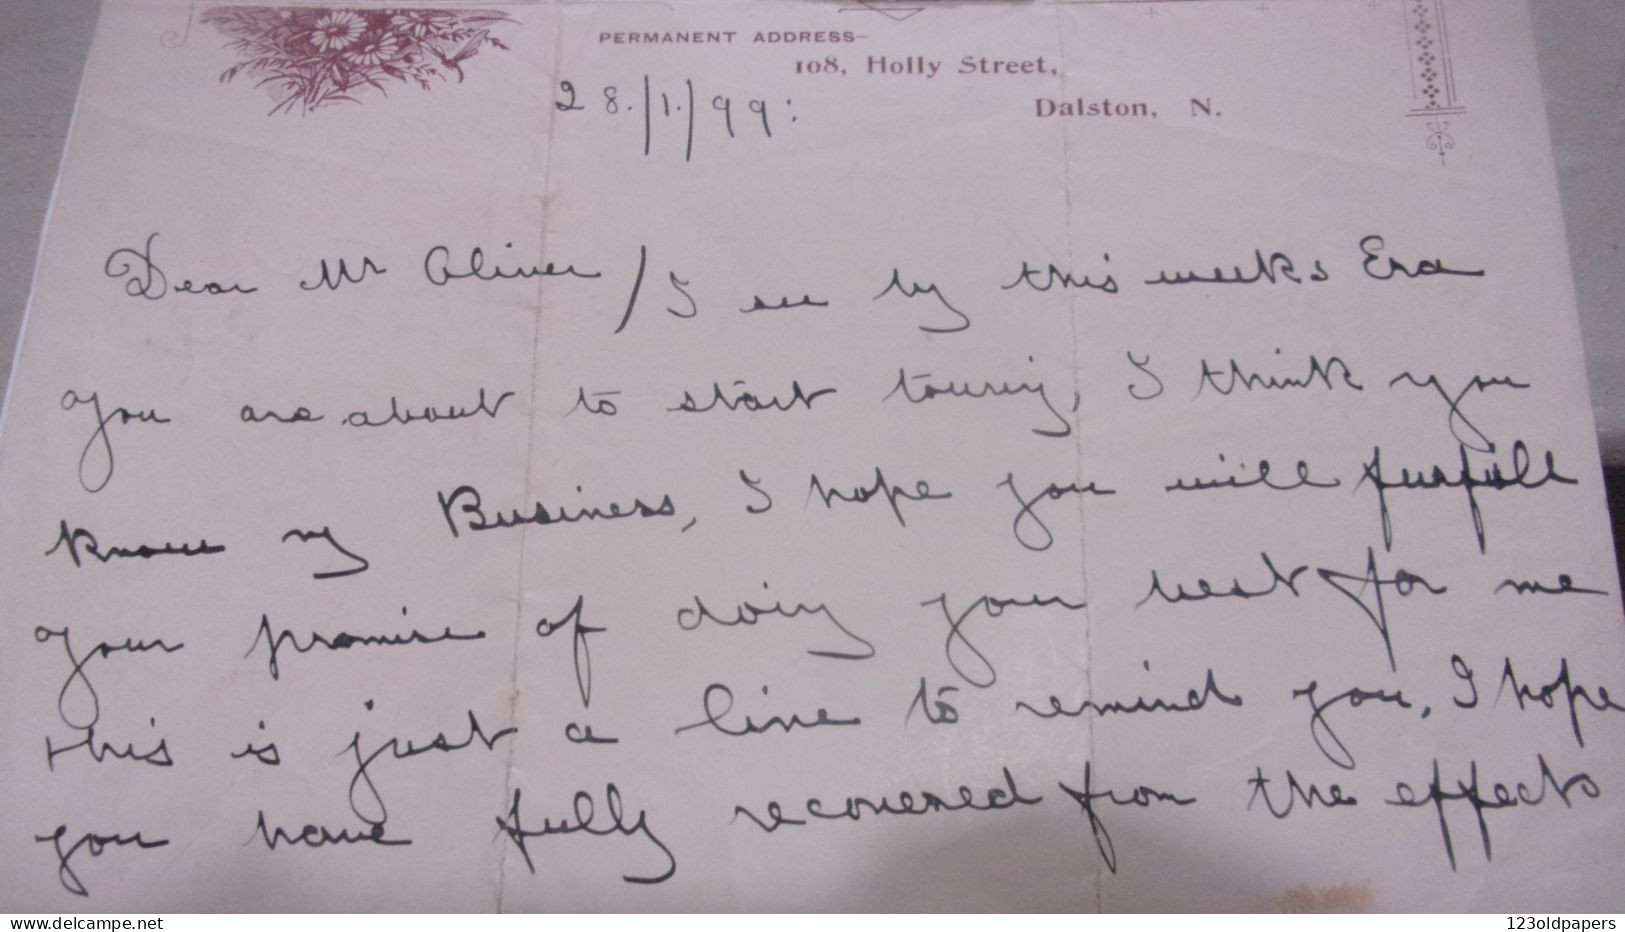 PERMANENT ADDRESS—
108, Holly Street,
Dalston, N.
28./1./99:
Dear Mr Oliver / I see by this weeks Era
you are about to start touring, I think you
know my Business, I hope you will furfill
your promise of doing your best for me
this is just a line to remind you, I hope
you have fully recovered from the effects
123oldpapers